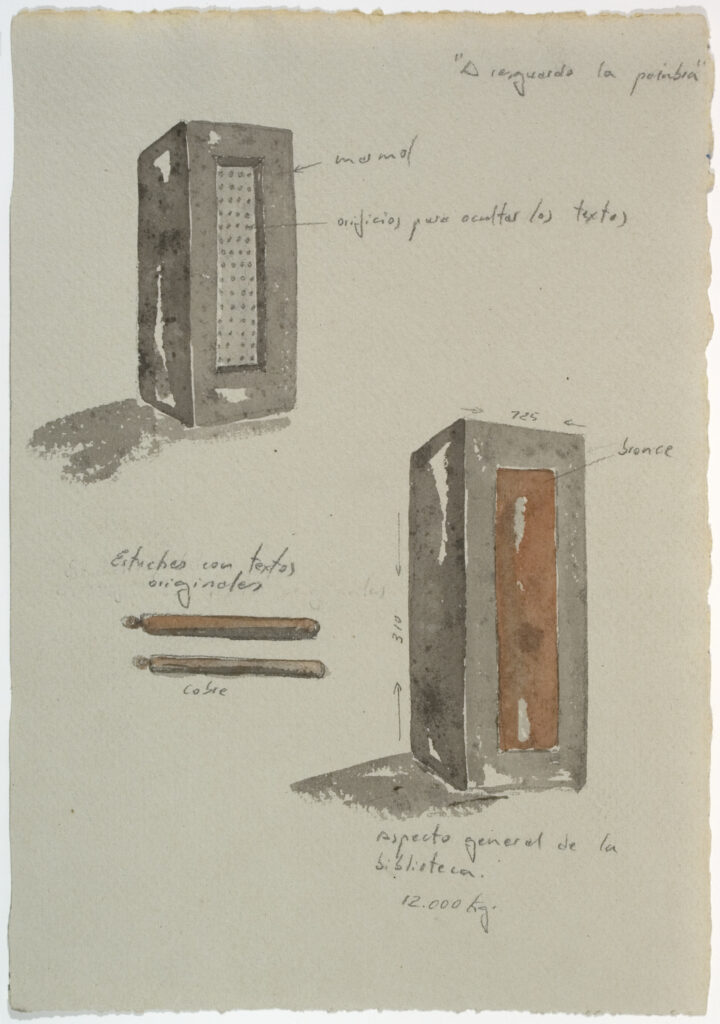 "A resguardo la palabra"
marmol
orificios para ocultar los textos
725
bronce
Estuches con textos
originales
310
cobre
Aspecto general de la
biblioteca.
12.000 Kg.